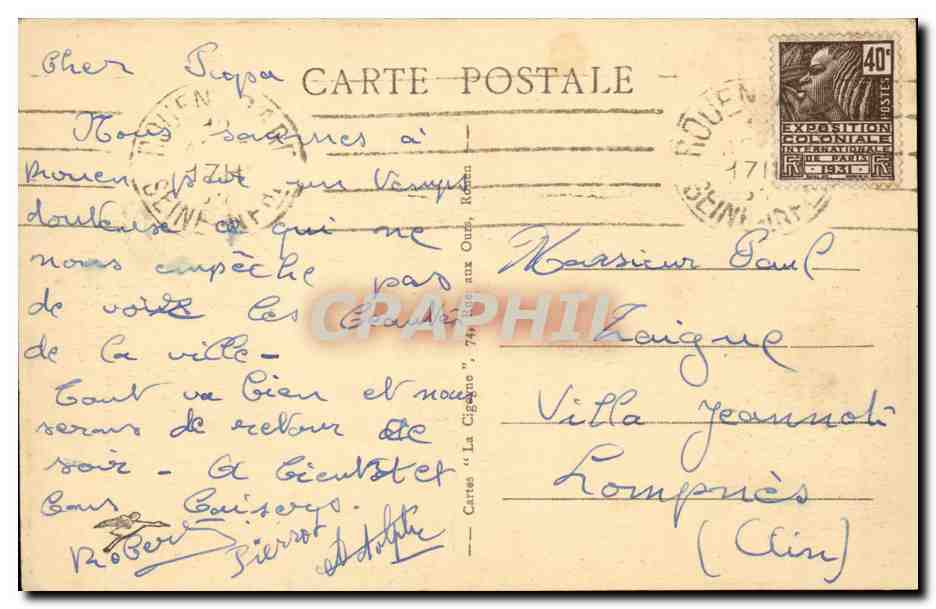 CARTE POSTALE
Cher Papa
Nous sommes à
Rouen par un temps
douteux ce qui ne
nous empêche pas
de voir les beautés
de la ville -
Tout va bien et nous
serons de retour ce
soir - A bientôt et
bons baisers.
Robert Pierrot Adolphe
— Cartes " La Cigogne ", 74, Rue aux Ours, Rouen —
ROUEN GARE
17H
SEINE INFRE
ROUEN
17H
SEINE INFRE
40c
POSTES
EXPOSITION
COLONIALE
INTERNATIONALE
DE PARIS
1931
Monsieur Paul
Laigue
Villa Jeannot
Lompnès
(Ain)
CPAPHIL